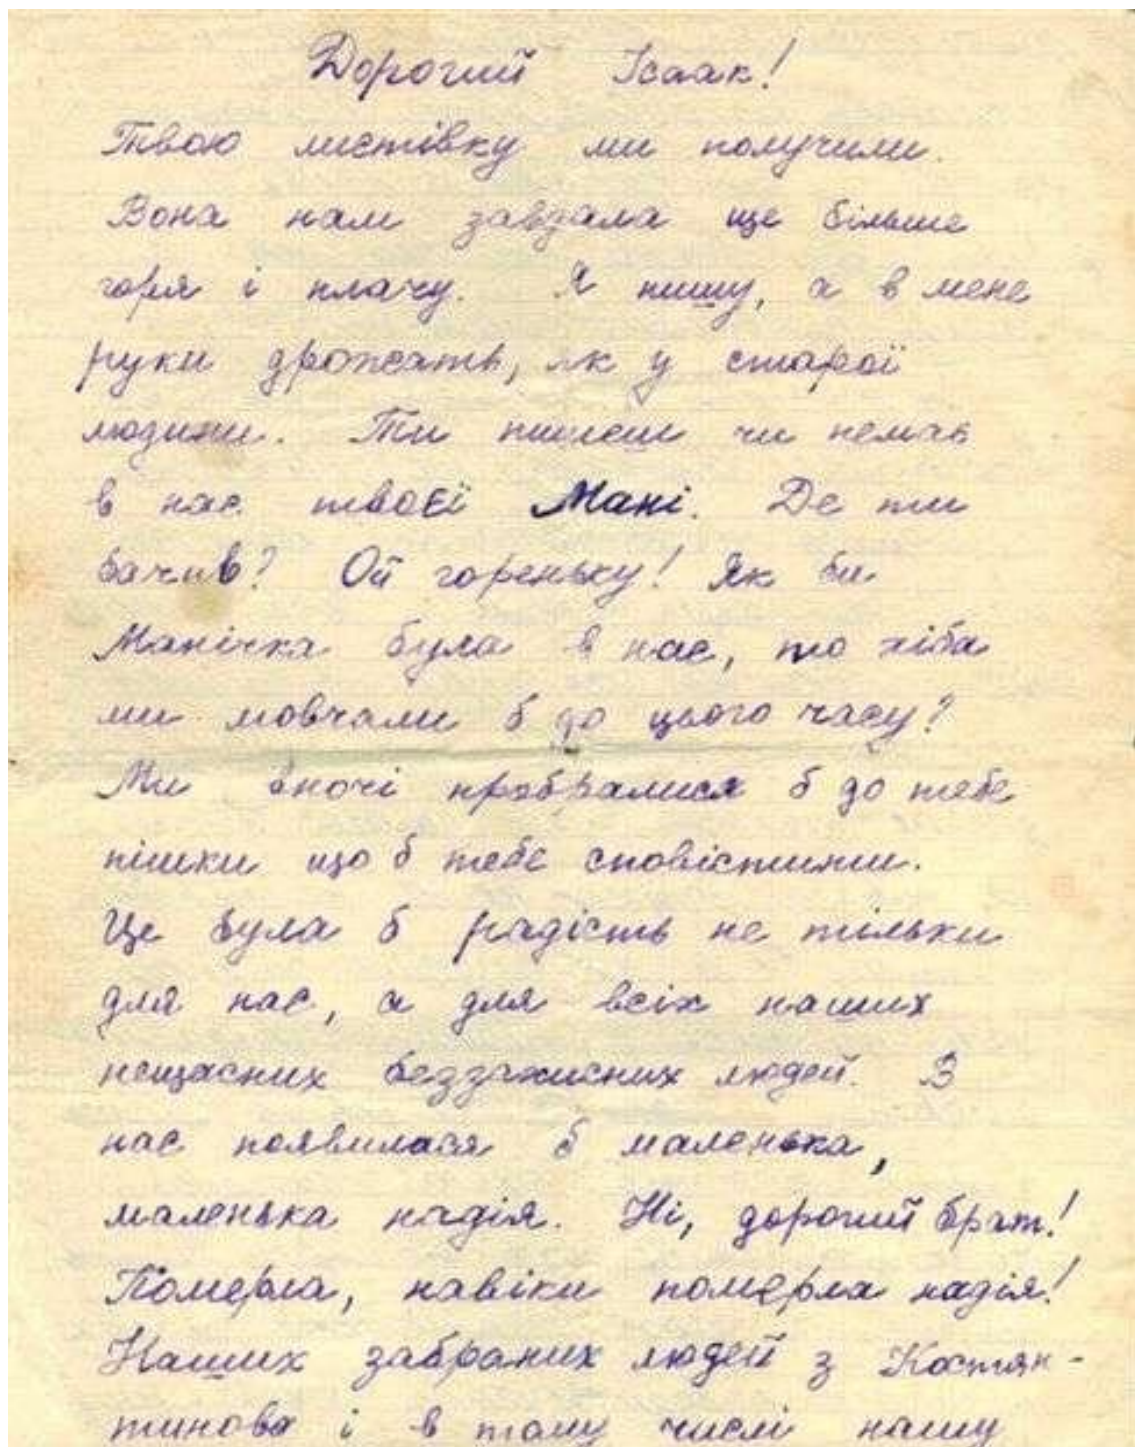 Дорогий Ісаак!
Твою листівку ми получили.
Вона нам завдала ще більше
горя і плачу. Я пишу, а в мене
руки дрожать, як у старої
людини. Ти пишеш чи немає
в нас твоєї Мані. Де ти
бачив? Ой горенько! Як би
Манічка була в нас, то хіба
ми мовчали б до цього часу?
Ми вночі пробралися б до тебе
пішки що б тебе сповістити.
Це була б радість не тільки
для нас, а для всіх наших
нещасних беззахисних людей. В
нас появилася б маленька,
маленька надія. Ні, дорогий брат!
Померла, навіки померла надія!
Наших забраних людей з Костян-
тинова і в тому числі нашу